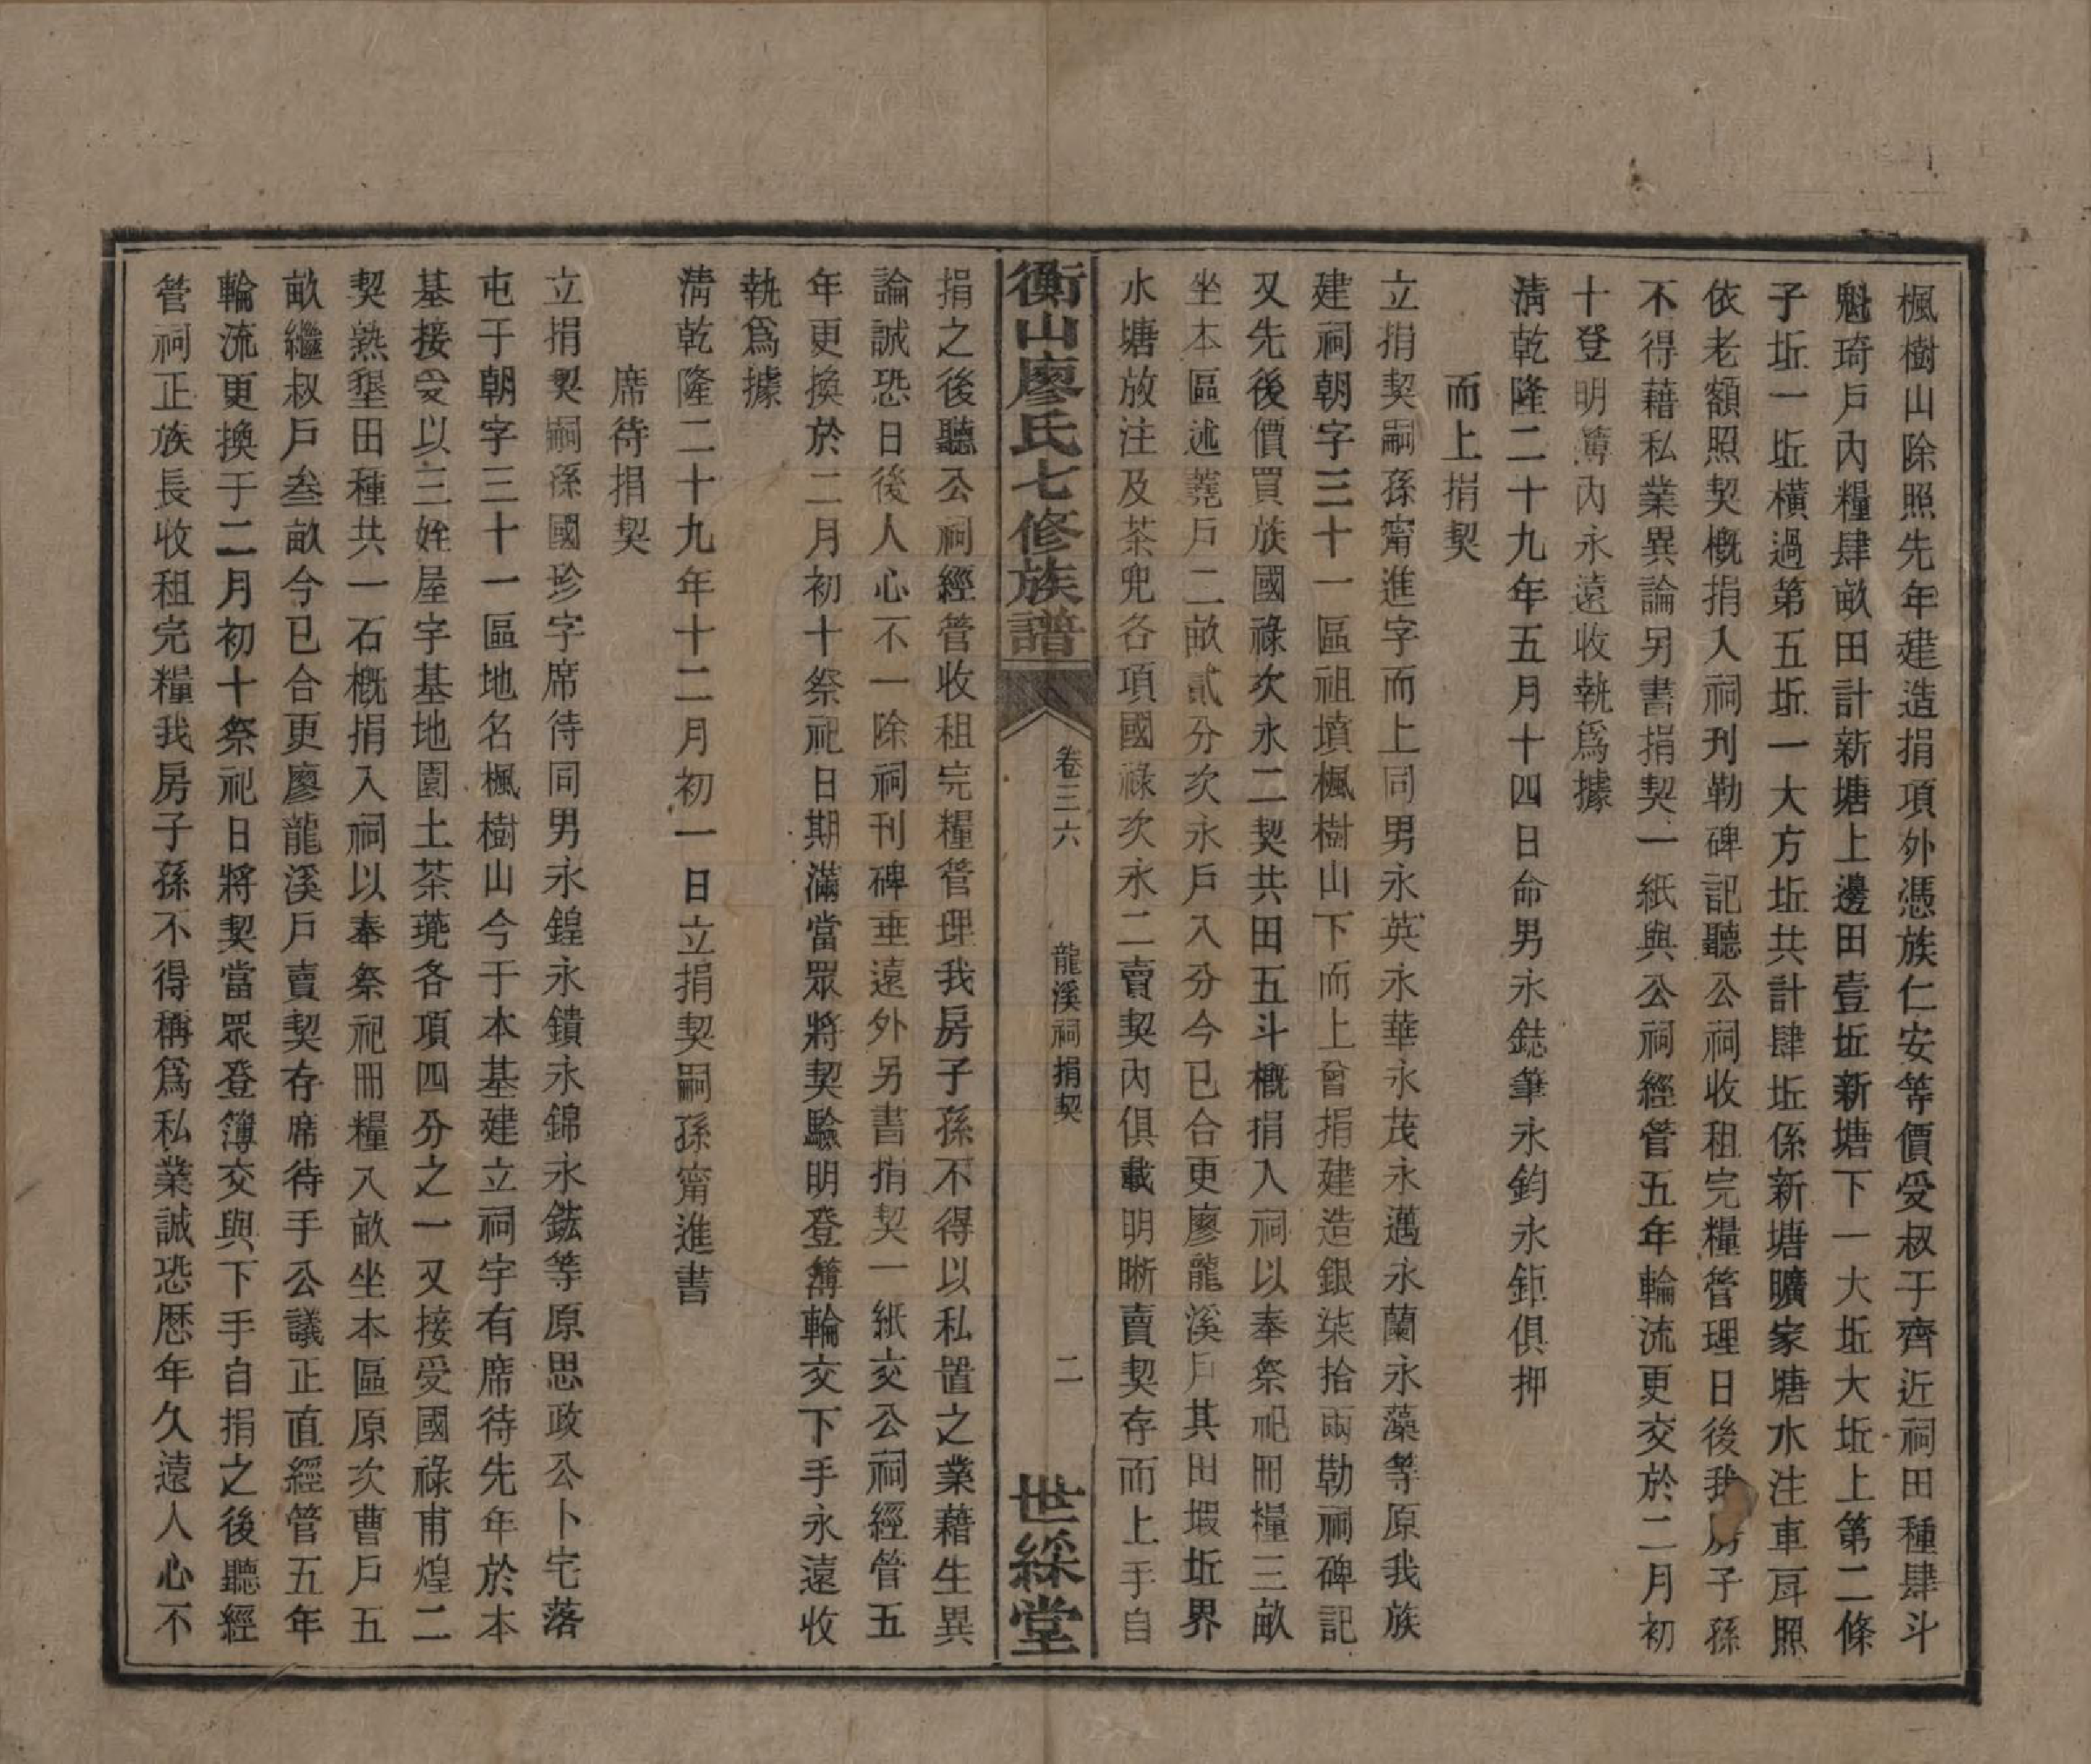 楓樹山除照先年建造捐項外憑族仁安等價受叔于齊近祠田種肆斗
魁琦戶內糧肆畝田計新塘上邊田壹坵新塘下一大坵大坵上第二條
子坵一坵橫過第五坵一大方坵共計肆坵係新塘曠家塘水注車戽照
依老額照契概捐入祠刊勒碑記聽公祠收租完糧管理日後我房子孫
不得藉私業異論另書捐契一紙與公祠經管五年輪流更交於二月初
十登明簿內永遠收執爲據
淸乾隆二十九年五月十四日命男永鋕筆永鈞永鉅俱押
而上捐契
立捐契嗣孫甯進字而上同男永英永華永茂永邁永蘭永藻等原我族
建祠朝字三十一區祖墳楓樹山下而上曾捐建造銀柒拾兩勒祠碑記
又先後價買族國祿次永二契共田五斗概捐入祠以奉祭祀冊糧三畝
坐本區述蕘戶二畝貳分次永戶入分今已合更廖龍溪戶其田塅坵界
水塘放注及茶兜各項國祿次永二賣契內俱載明晰賣契存而上手自
衡山廖氏七修族譜
卷三六
龍溪祠捐契
二
世綵堂
捐之後聽公祠經管收租完糧管理我房子孫不得以私置之業藉生異
論誠恐日後人心不一除祠刊碑垂遠外另書捐契一紙交公祠經管五
年更換於二月初十祭祀日期滿當眾將契驗明登簿輪交下手永遠收
執爲據
淸乾隆二十九年十二月初一日立捐契嗣孫甯進書
席待捐契
立捐契嗣孫國珍字席待同男永鍠永鐀永錦永鋐等原思政公卜宅落
屯于朝字三十一區地名楓樹山今于本基建立祠宇有席待先年於本
基接受以三姪屋字基地園土茶蕘各項四分之一又接受國祿甫煌二
契熟墾田種共一石概捐入祠以奉祭祀冊糧入畝坐本區原次曹戶五
畝繼叔戶叁畝今已合更廖龍溪戶賣契存席待手公議正直經管五年
輪流更換于二月初十祭祀日將契當眾登簿交與下手自捐之後聽經
管祠正族長收租完糧我房子孫不得稱爲私業誠恐歷年久遠人心不